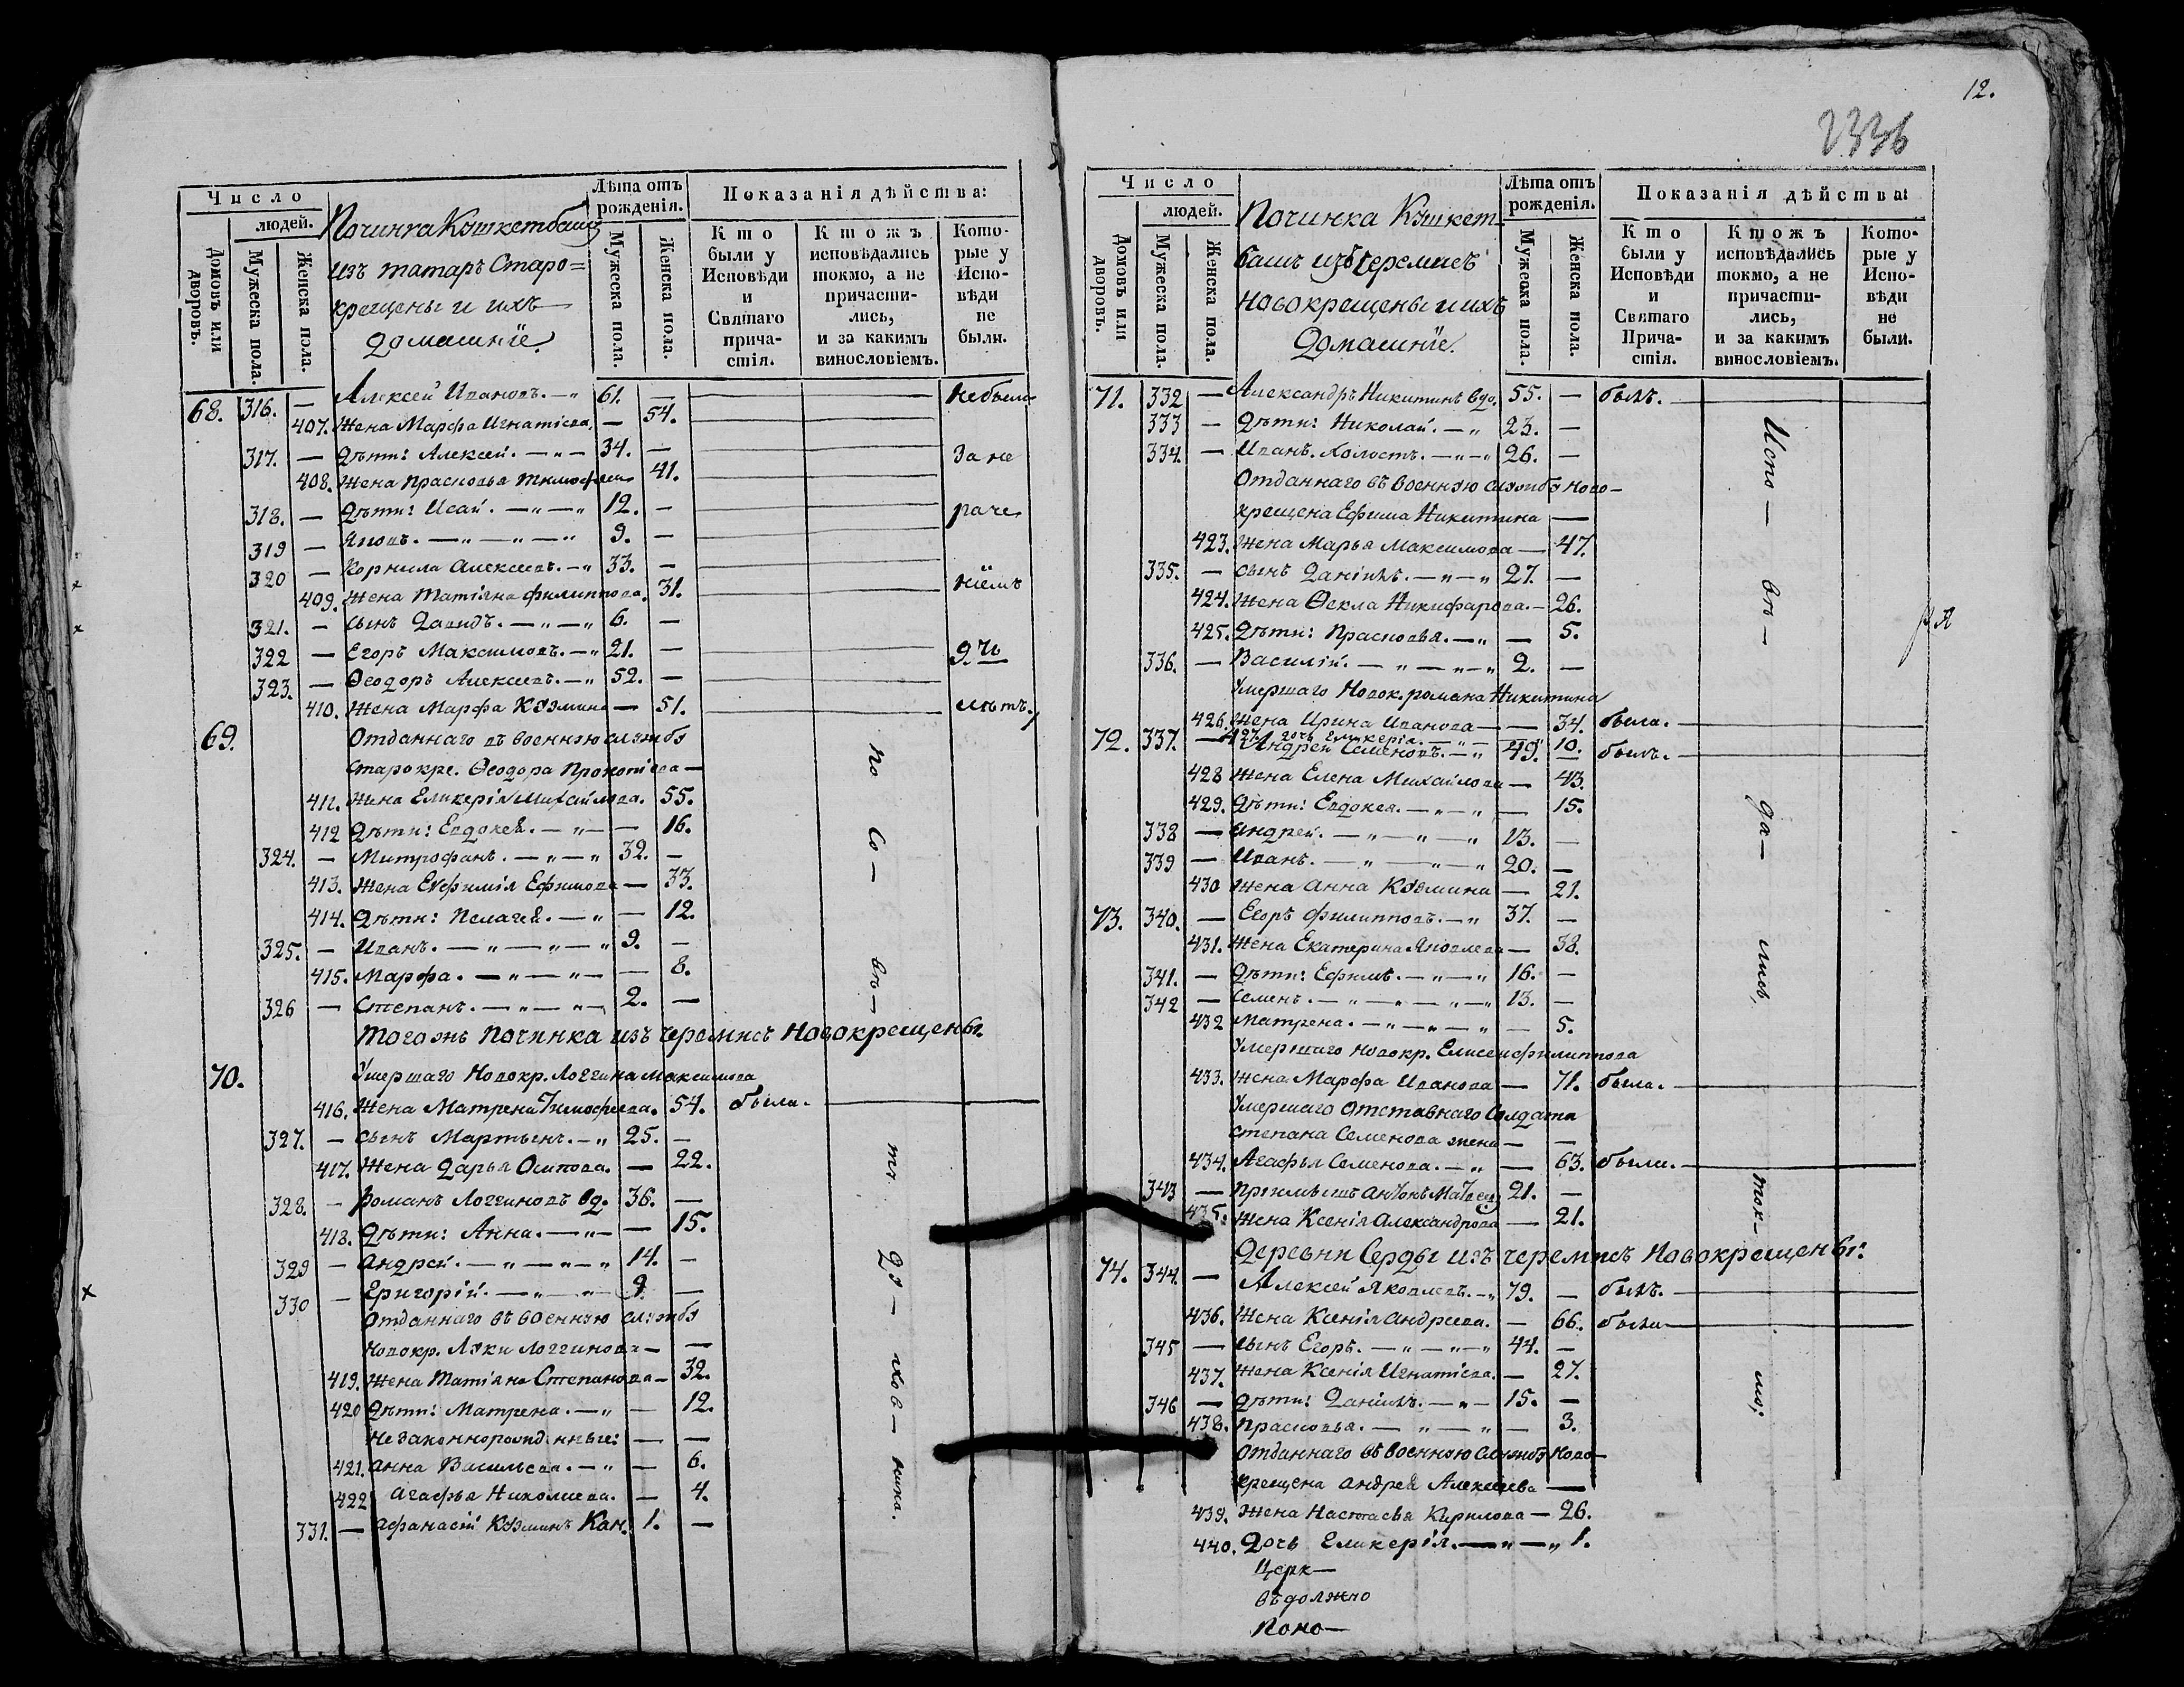 Число
людей.
Домовъ или дворовъ.
Мужеска пола.
Женска пола.
Починка Кушкетбашъ
изъ татаръ Старо=
крещены и ихъ
домашніе.
Лѣта отъ рожденія.
Мужеска пола.
Женска пола.
Показанія дѣйства:
Кто были у Исповѣди и Святаго причастія.
Ктожъ исповѣдались токмо, а не причастились, и за какимъ винословіемъ.
Которые у Исповѣди не были.
68. 316. — Алексей Ивановъ. — „ 61. — небыли
407. Жена Марфа Игнатіева, — 54.
317. — Дѣти: Алексей. — „ — 34. — За не
408. Жена Прасковья Тимофеева 41.
318. — Дѣти: Исай. — „ — „ 12. — раче
319 — Яковъ. — „ — „ — „ 9. —
320 — Корнила Алексеевъ. — „ 33. —
409. Жена Татіяна Филиппова. 31. ніемъ
321. — Сынъ Давидъ. — „ — „ 6. —
322 — Егоръ Максимовъ. — „ 21. —
323. — Ѳеодоръ Алексеевъ. — „ 52. —
410. Жена Марфа Кузмина — 51.
69. Отданнаго въ военную службу
Старокре. Ѳеодора Прокопіева —
411. Жена Гликерія Михайлова. 55.
412 Дѣти: Евдокея. — „ — — 16.
324. — Митрофанъ. — „ — „ 32. —
413. Жена Евфимія Ефимова — 33.
414. Дѣти: Пелагея. — „ — 12.
325. — Иванъ. — „ — „ — „ 9. —
415. Марфа. — „ — „ — — 8.
326 — Степанъ. — „ — „ — 2. —
Тогожъ Починка изъ черемисъ Новокрещены.
70. Умершаго Новокр. Логгина Максимова
416. Жена Матрена Тимофеева. 54. была.
327. — Сынъ Мартынъ. — „ 25. —
417. Жена Дарья Осипова. — 22.
328. — Романъ Логгиновъ Вд. 36. —
418. Дѣти: Анна. — „ — — 15.
329 — Андрей. — „ — „ — „ 14. —
330 — Григорій. — „ — „ — 9. —
Отданнаго въ военную службу
Новокр. Луки Логгинова — —
419. Жена Татіяна Степанова — 32.
420 Дѣти: Матрена. — „ — 12.
Незаконнорожденныe: — —
421. Анна Васильева. — „ — 6.
422 Агафья Николаева. — 4.
331. — Афанасій Кузминъ 1. —
по Со — въ — ту ду — хов — ника.
12.
2336
Число
людей.
Домовъ или дворовъ.
Мужеска пола.
Женска пола.
Починка Кушкет-
башъ изъ черемисъ
новокрещены и ихъ
Домашніе.
Лѣта отъ рожденія.
Мужеска пола.
Женска пола.
Показанія дѣйства:
Кто были у Исповѣди и Святаго Причастія.
Ктожъ исповѣдались токмо, а не причастились, и за какимъ винословіемъ.
Которые у Исповѣди не были.
71. 332 — Александръ Никитинъ вдо. 55. — былъ.
333 — Дѣти: Николай. — „ 23. —
334. — Иванъ. Холостъ. — „ — „ 26. —
Отданнаго въ военную службу ново —
крещена Ефима Никитина —
423. Жена Марья Максимова — 47.
335. — сынъ Даніилъ. — „ — „ 27. —
424. Жена Ѳекла Никифарова. — 26.
425. Дѣти: Прасковья. — „ — 5.
336. — Василій. — „ — „ — „ 2. —
Умершаго Новок. романа Никитина
426. Жена Ирина Иванова — — 34. была.
427. дочь Гликерія. — „ — 10.
72. 337. — Андрей Семеновъ. — „ 49. — былъ.
428 Жена Елена Михайлова — 43.
429. Дѣти: Евдокея. — „ — „ — 15.
338 — Андрей. — „ — „ — „ 13. —
339 — Иванъ. — „ — „ — „ 20. —
430 Жена Анна Кузмина — 21.
73. 340. — Егоръ Филипповъ. — „ 37. —
431. Жена Екатерина Яковлева — 38.
341. — Дѣти: Ефимъ. — „ — „ 16. —
342 — Семенъ. — „ — „ — „ — „ 13. —
432 Матрена. — „ — „ — „ — 5.
Умершаго новокр. Елисея Филиппова
433. Жена Марфа Иванова — 71. была.
Умершаго Отставнаго Солдата
степана Семенова жена — —
434. Агафья Семенова. — „ — 63. была.
343 — Пріемышъ Антонъ 21. —
435. Жена Ксенія Александрова — 21.
Деревни Серды изъ черемисъ Новокрещены:
74. 344. — Алексей Яковлевъ. — „ 79. — былъ.
436. Жена Ксенія Андреева. — 66. была
345 — сынъ Егоръ. — „ — „ — „ 44. —
437. Жена Ксенія Игнатіева. — 27.
346 — Дѣти: Даніилъ. — „ — 15. —
438. Прасковья. — „ — „ — 3.
Отданнаго въ военную службу ново —
крещена Андрея Алексеева —
439. Жена Настасья Кирилова — 26.
440. Дочь Гликерія. — „ — „ 1.
Церк —
въ должно
Поно —
Испо — вѣ — да — лись, ток — мо;